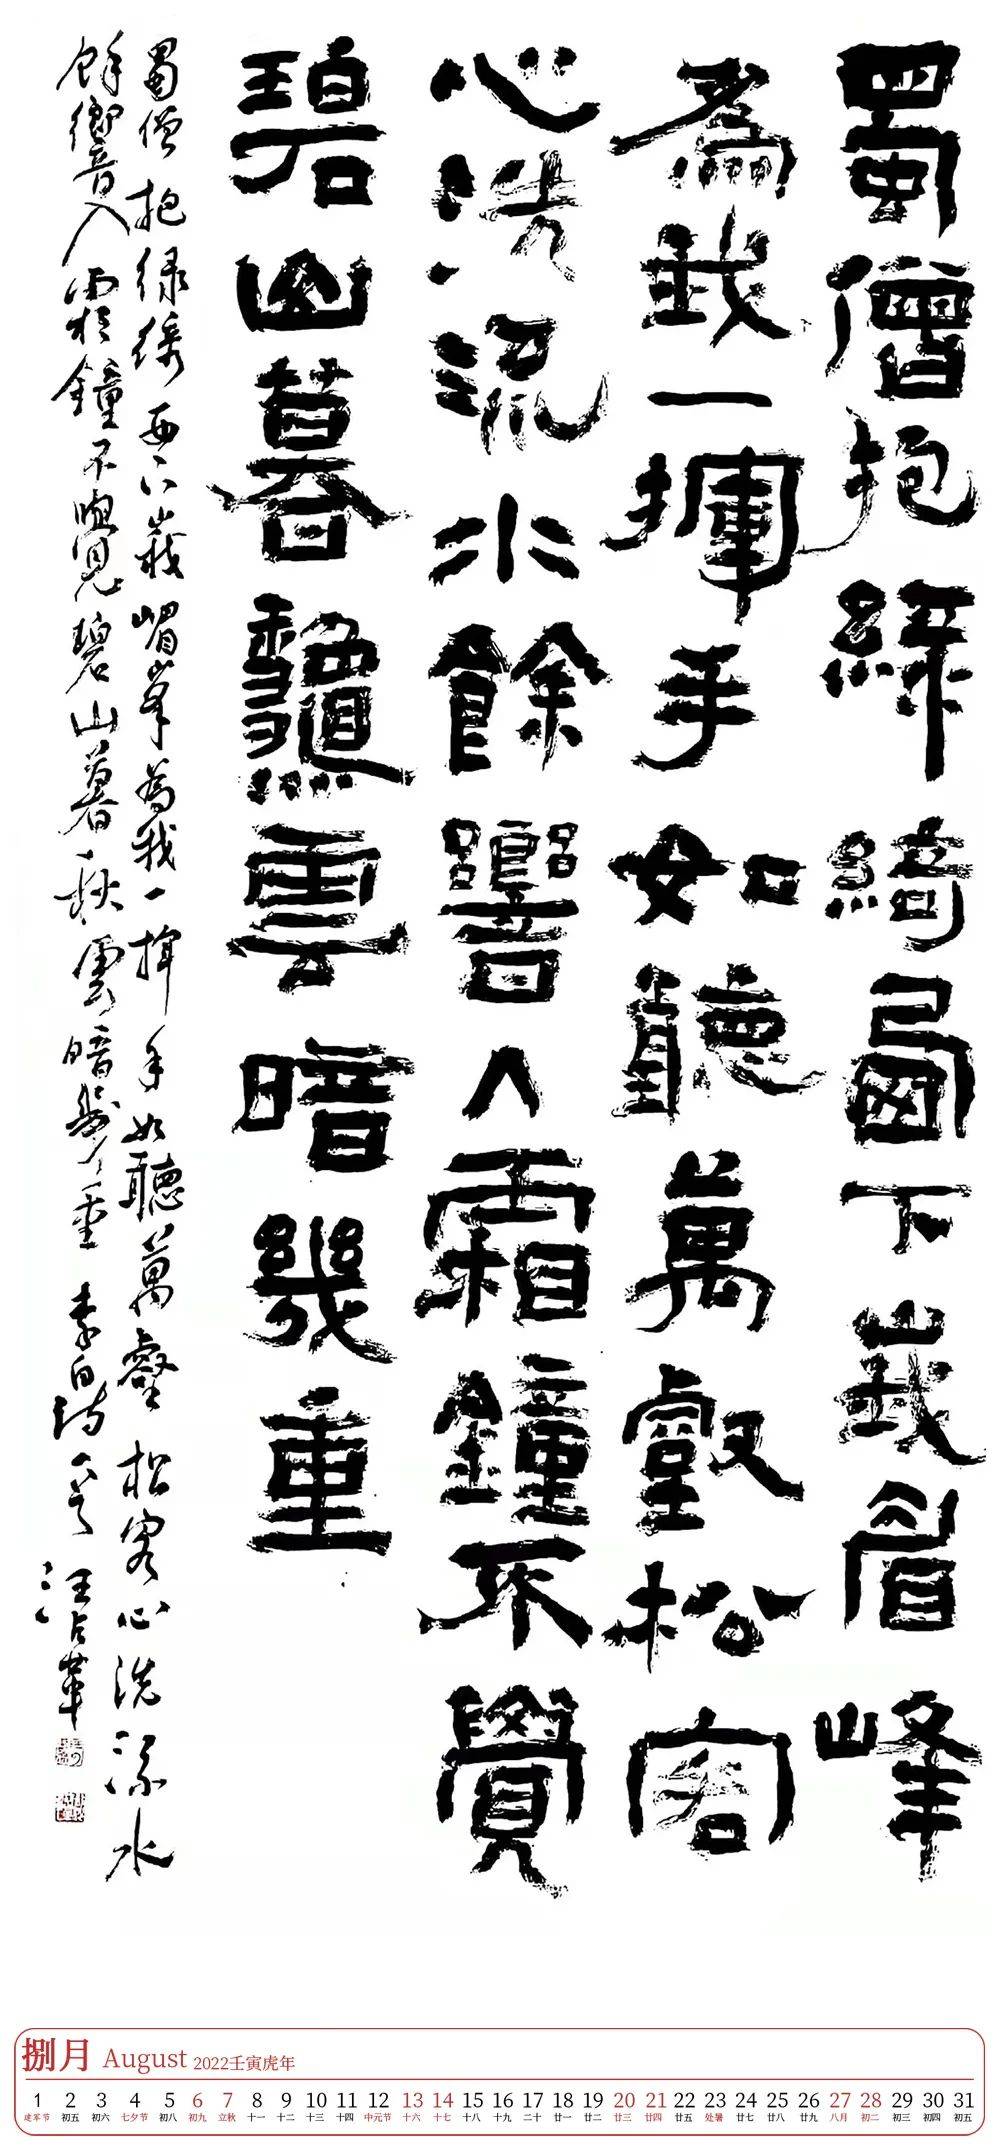 蜀僧抱綠綺西下峩眉峰
為我一揮手如聽萬壑松客
心洗流水餘響入霜鐘不覺
碧山暮龝雲暗幾重
蜀僧抱綠綺西下峩嵋峯為我一揮手如聽萬壑松客心洗流水
餘響入霜鐘不覺碧山暮秋雲暗幾重 李白詩一首 汪占革
捌月 August 2022壬寅虎年
1 2 3 4 5 6 7 8 9 10 11 12 13 14 15 16 17 18 19 20 21 22 23 24 25 26 27 28 29 30 31
建军节 初五 初六 七夕节 初八 初九 立秋 十一 十二 十三 十四 中元节 十六 十七 十八 十九 二十 廿一 廿二 廿三 廿四 廿五 处暑 廿七 廿八 廿九 八月 初二 初三 初四 初五